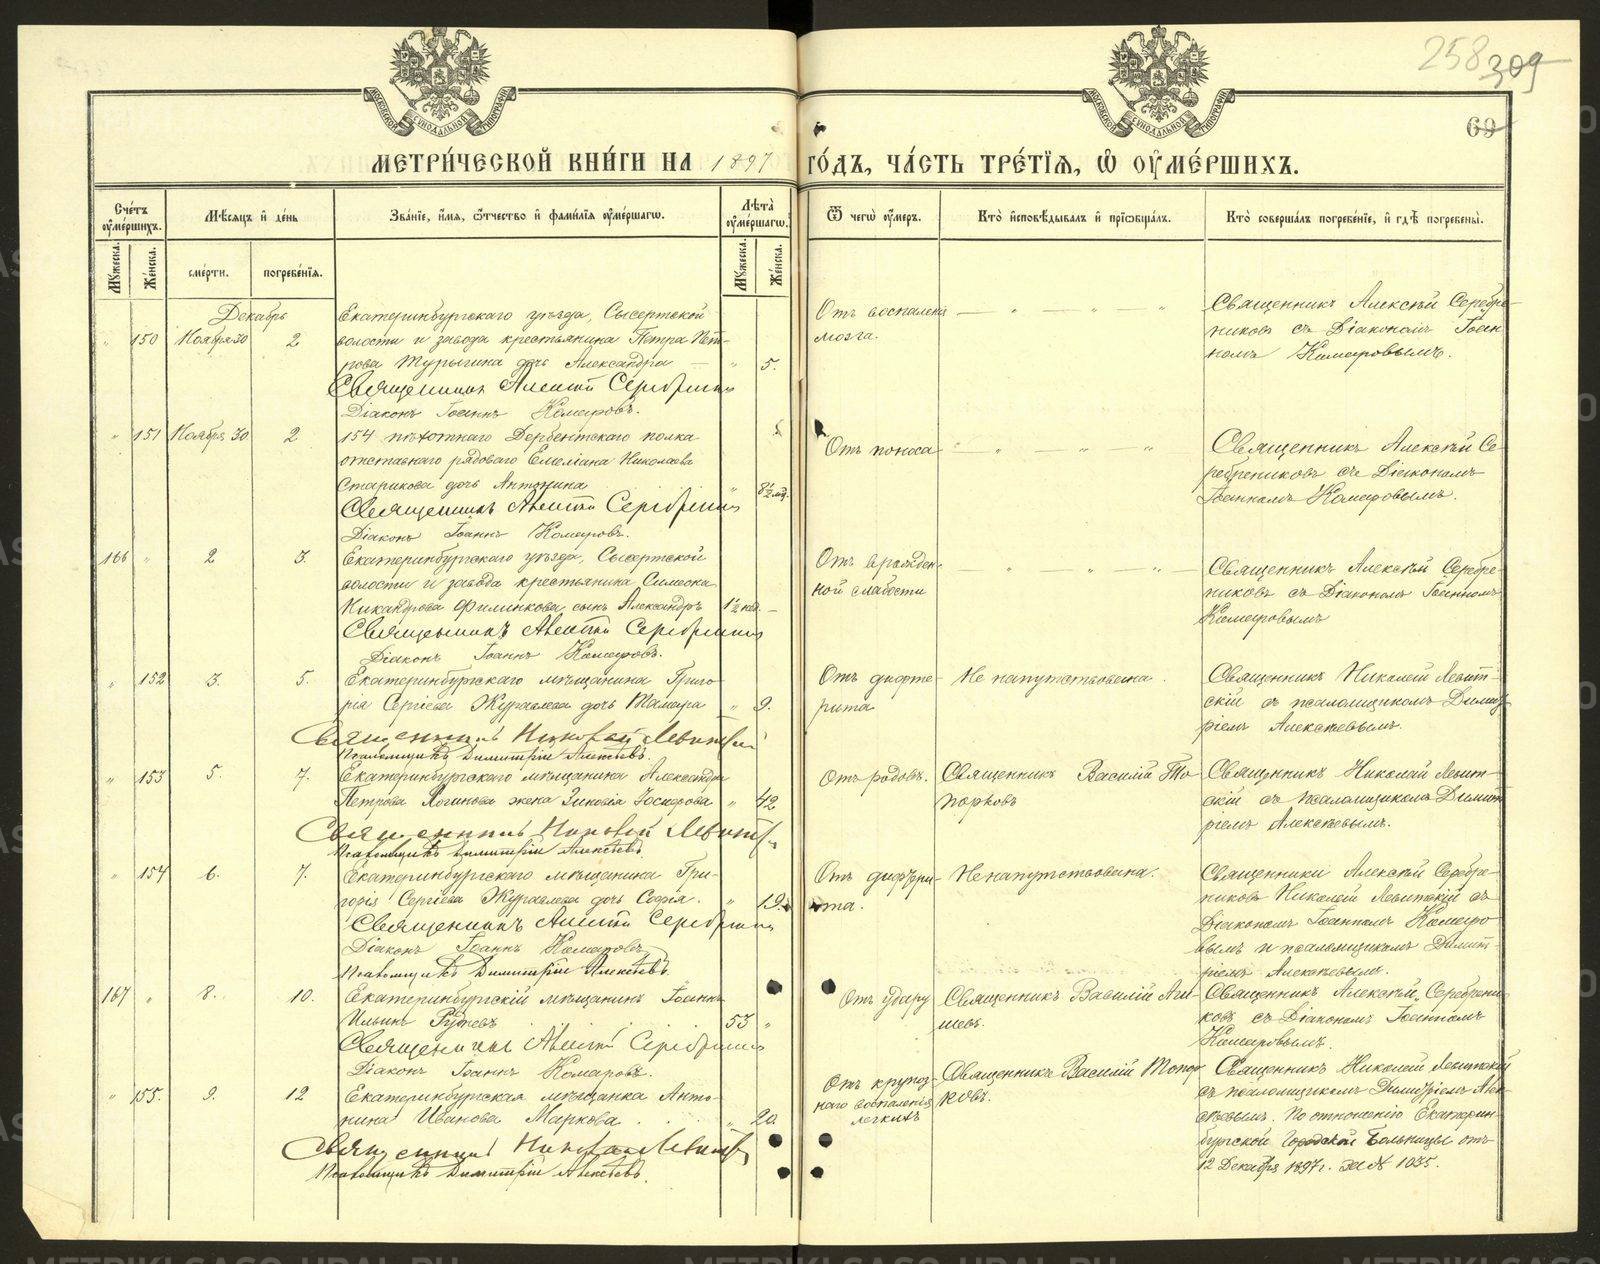 258 309
69
МЕТРИ́ЧЕСКОЙ КНИ́ГИ НА 1897 ГО́ДЪ, ЧА́СТЬ ТРЕ́ТІЯ, Ѡ ОУМЕ́РШИХЪ.
Сче́тъ оуме́ршихъ.
Мѣ́сяцъ и де́нь
Зва́ніе, и́мя, ѻ́тчество и фами́лія оуме́ршагѡ.
Лѣта̀ оуме́ршагѡ.
Ѿ чегѡ̀ оу́меръ.
Кто̀ исповѣ́дывалъ и пріѡбща́лъ.
Кто̀ соверша́лъ погребе́ніе, и гдѣ̀ погребены̀.
Мꙋ́жеска.
Же́нска.
сме́рти.
погребе́нія.
Мꙋ́жеска.
Же́нска.
Декабрь
Екатеринбургскаго уѣзда, Сысертской
" 150 Ноября 30 2 волости и завода крестьянина Петра Пет-
рова Турыгина дочь Александра — " 5.
Священникъ Алексѣй Серебрениковъ
Діаконъ Іоаннъ Комаровъ.
Отъ воспаленія
мозга.
Священникъ Алексѣй Серебре-
никовъ съ Діакономъ Іоан-
номъ Комаровымъ.
" 151 Ноября 30 2 154 пѣхотнаго Дербентскаго полка
отставнаго рядоваго Емеліана Николаева
Старикова дочь Антонина " 8½ мѣс.
Священникъ Алексѣй Серебрениковъ
Діаконъ Іоаннъ Комаровъ.
Отъ поноса
Священникъ Алексѣй Се-
ребрениковъ съ Діакономъ
Іоанномъ Комаровымъ.
166 " 2 3. Екатеринбургскаго уѣзда, Сысертской
волости и завода крестьянина Симеона
Никандрова Филинкова сынъ Александръ 1½ нед. —
Священникъ Алексѣй Серебрениковъ
Діаконъ Іоаннъ Комаровъ.
Отъ врожден-
ной слабости
Священникъ Алексѣй Серебре-
никовъ съ Діакономъ Іоанномъ
Комаровымъ
" 152 3. 5. Екатеринбургскаго мѣщанина Григо-
рія Сергіева Журавлева дочь Тамара " 9.
Священникъ Николай Левитскій
Псаломщикъ Димитрій Алексѣевъ.
Отъ дифте-
рита
Не напутствована.
Священникъ Николай Левит-
скій съ псаломщикомъ Димит-
ріемъ Алексѣевымъ.
" 153 5. 7. Екатеринбургскаго мѣщанина Александра
Петрова Логинова жена Зиновія Іосифова " 42
Священникъ Николай Левитскій
Псаломщикъ Димитрій Алексѣевъ
Отъ родовъ.
Священникъ Василій То-
порковъ
Священникъ Николай Левит-
скій съ псаломщикомъ Димит-
ріемъ Алексѣевымъ.
" 154 6. 7. Екатеринбургскаго мѣщанина Гри-
горія Сергіева Журавлева дочь Софія. " 19.
Священникъ Алексѣй Серебрениковъ
Діаконъ Іоаннъ Комаровъ
Псаломщикъ Димитрій Алексѣевъ.
Отъ дифтери-
та.
Не напутствована.
Священники Алексѣй Серебре-
никовъ Николай Левитскій съ
Діакономъ Іоанномъ Комаро-
вымъ и псаломщикомъ Димит-
ріемъ Алексѣевымъ.
167 " 8. 10. Екатеринбургскій мѣщанинъ Іоаннъ
Ильинъ 53 "
Священникъ Алексѣй Серебрениковъ
Діаконъ Іоаннъ Комаровъ.
Отъ удару
Священникъ Василій
Священникъ Алексѣй Серебрени-
ковъ съ Діакономъ Іоанномъ
Комаровымъ.
" 155. 9. 12 Екатеринбургская мѣщанка Анто-
нина Иванова Маркова " 20
Священникъ Николай Левитскій
Псаломщикъ Димитрій Алексѣевъ.
Отъ крупоз-
наго воспаленія
легкихъ
Священникъ Василій Топор-
ковъ.
Священникъ Николай Левитскій
съ псаломщикомъ Димитріемъ Алек-
сѣевымъ. По отношенію Екатерин-
бургской Городской Больницы отъ
12 Декабря 1897 г. за № 1035.
METRIKI.GASO-URAL.RU